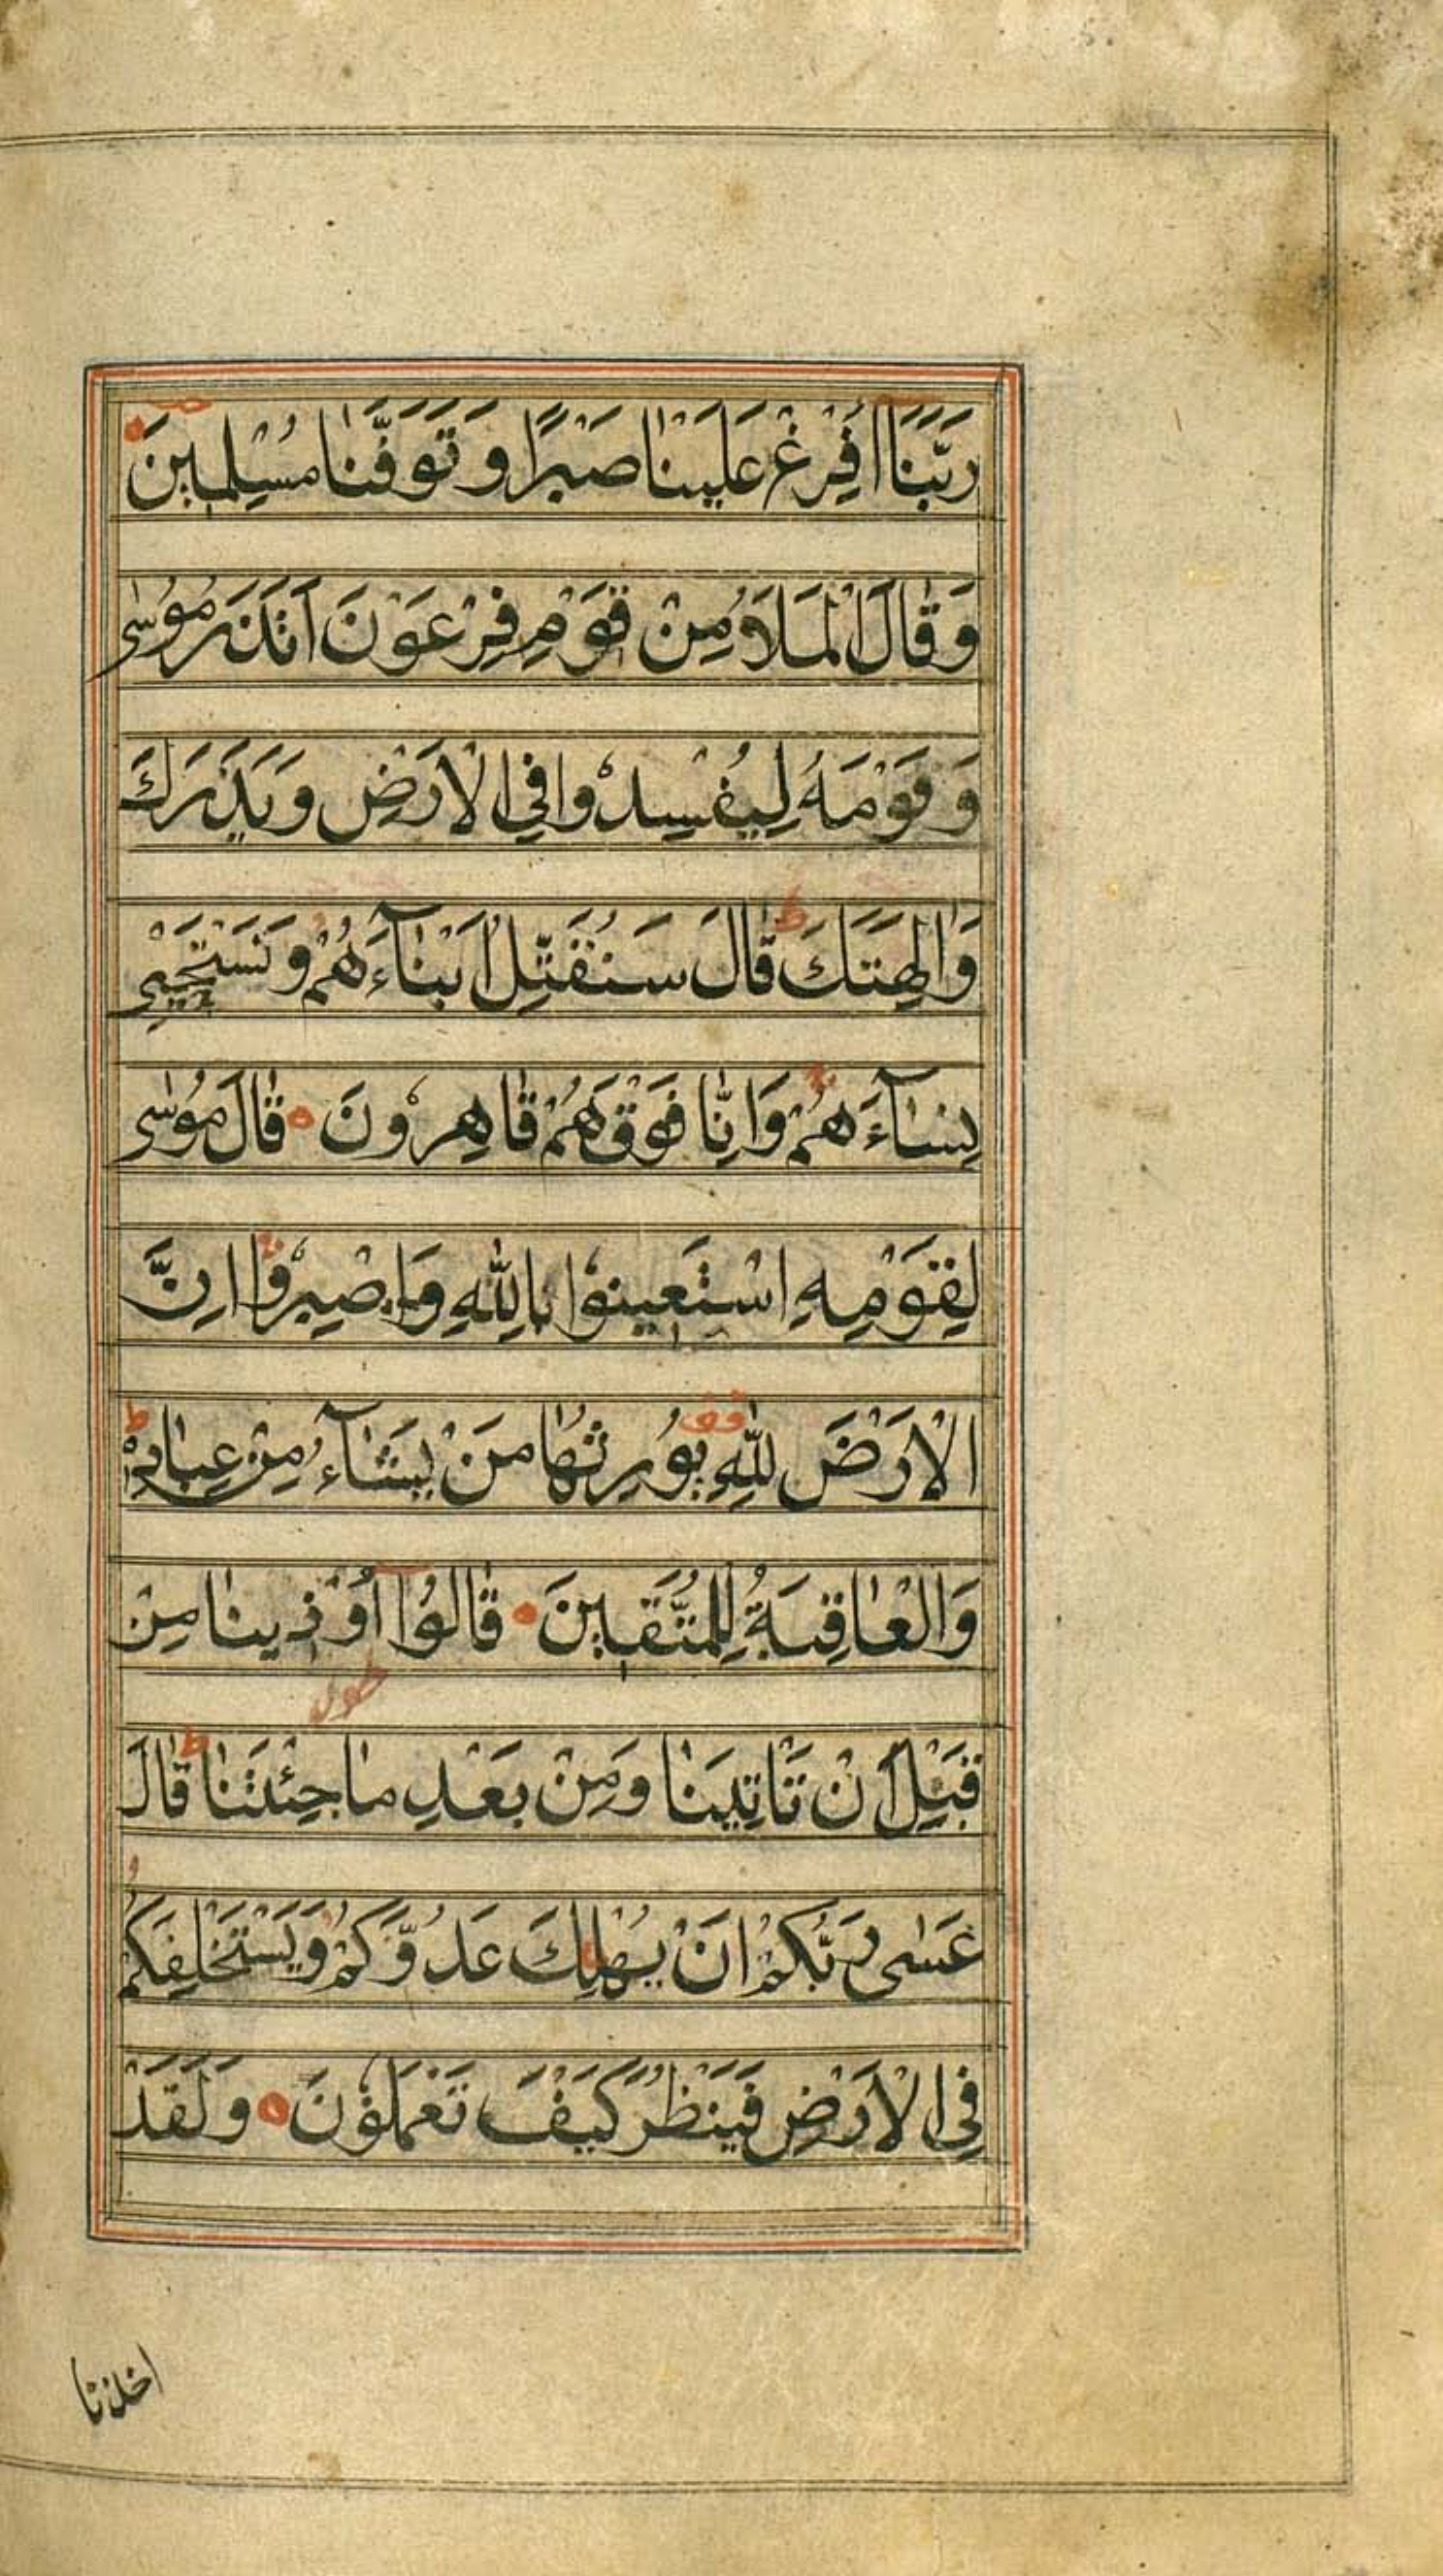 رَبَّنَا اَفْرِغْ عَلَيْنَا صَبْرًا وَتَوَفَّنَا مُسْلِمِينَ
وَقَالَ الْمَلَاُ مِنْ قَوْمِ فِرْعَوْنَ اَتَذَرُ مُوسٰى
وَقَوْمَهُ لِيُفْسِدُوا فِي الْاَرْضِ وَيَذَرَكَ
وَاٰلِهَتَكَ ط قَالَ سَنُقَتِّلُ اَبْنَآءَهُمْ وَنَسْتَحْيِي
نِسَآءَهُمْ وَاِنَّا فَوْقَهُمْ قَاهِرُونَ قَالَ مُوسٰى
لِقَوْمِهِ اسْتَعِينُوا بِاللّٰهِ وَاصْبِرُوا اِنَّ
الْاَرْضَ لِلّٰهِ قف يُورِثُهَا مَنْ يَشَآءُ مِنْ عِبَادِهِ ط
وَالْعَاقِبَةُ لِلْمُتَّقِينَ قَالُوا اُوذِينَا مِنْ
قَبْلِ اَنْ تَاْتِيَنَا وَمِنْ بَعْدِ مَا جِئْتَنَا ط قَالَ
عَسٰى رَبُّكُمْ اَنْ يُهْلِكَ عَدُوَّكُمْ وَيَسْتَخْلِفَكُمْ
فِي الْاَرْضِ فَيَنْظُرَ كَيْفَ تَعْمَلُونَ وَلَقَدْ
اخذنا